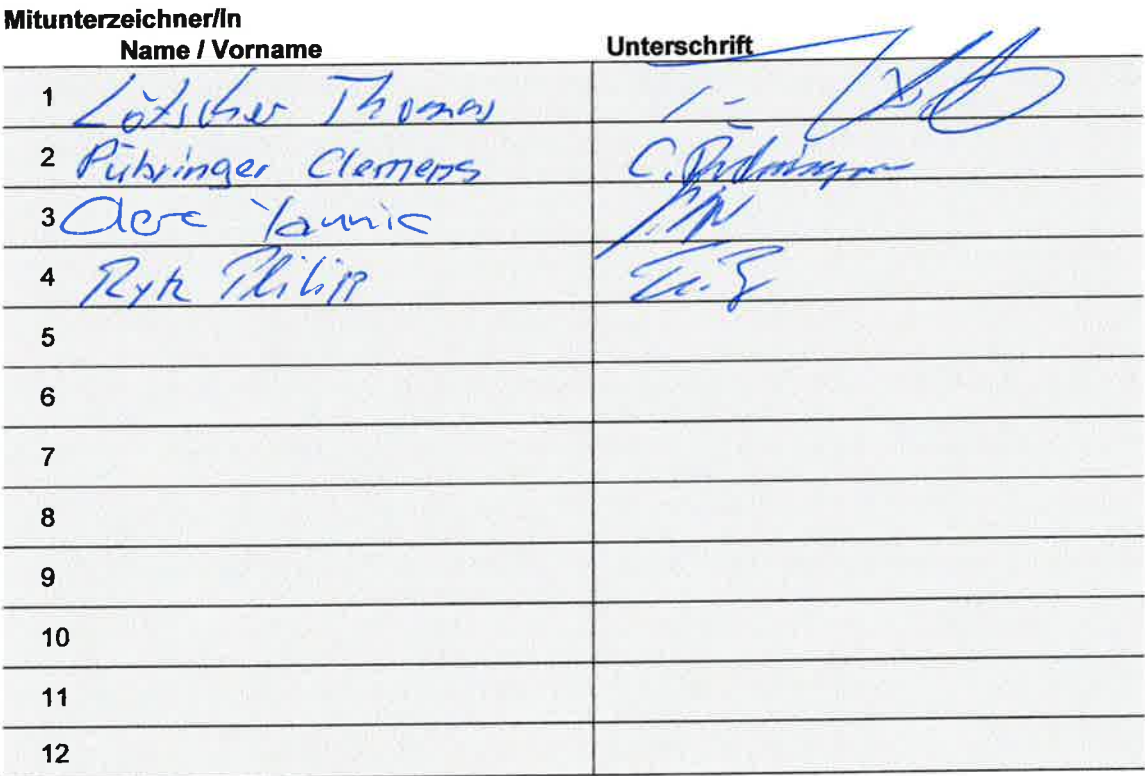 Mitunterzeichner/in
Name / Vorname Unterschrift
1 Lötscher Thomas
2 Pühringer Clemens C. Pühringer
3 Yannic
4 Philipp
5
6
7
8
9
10
11
12